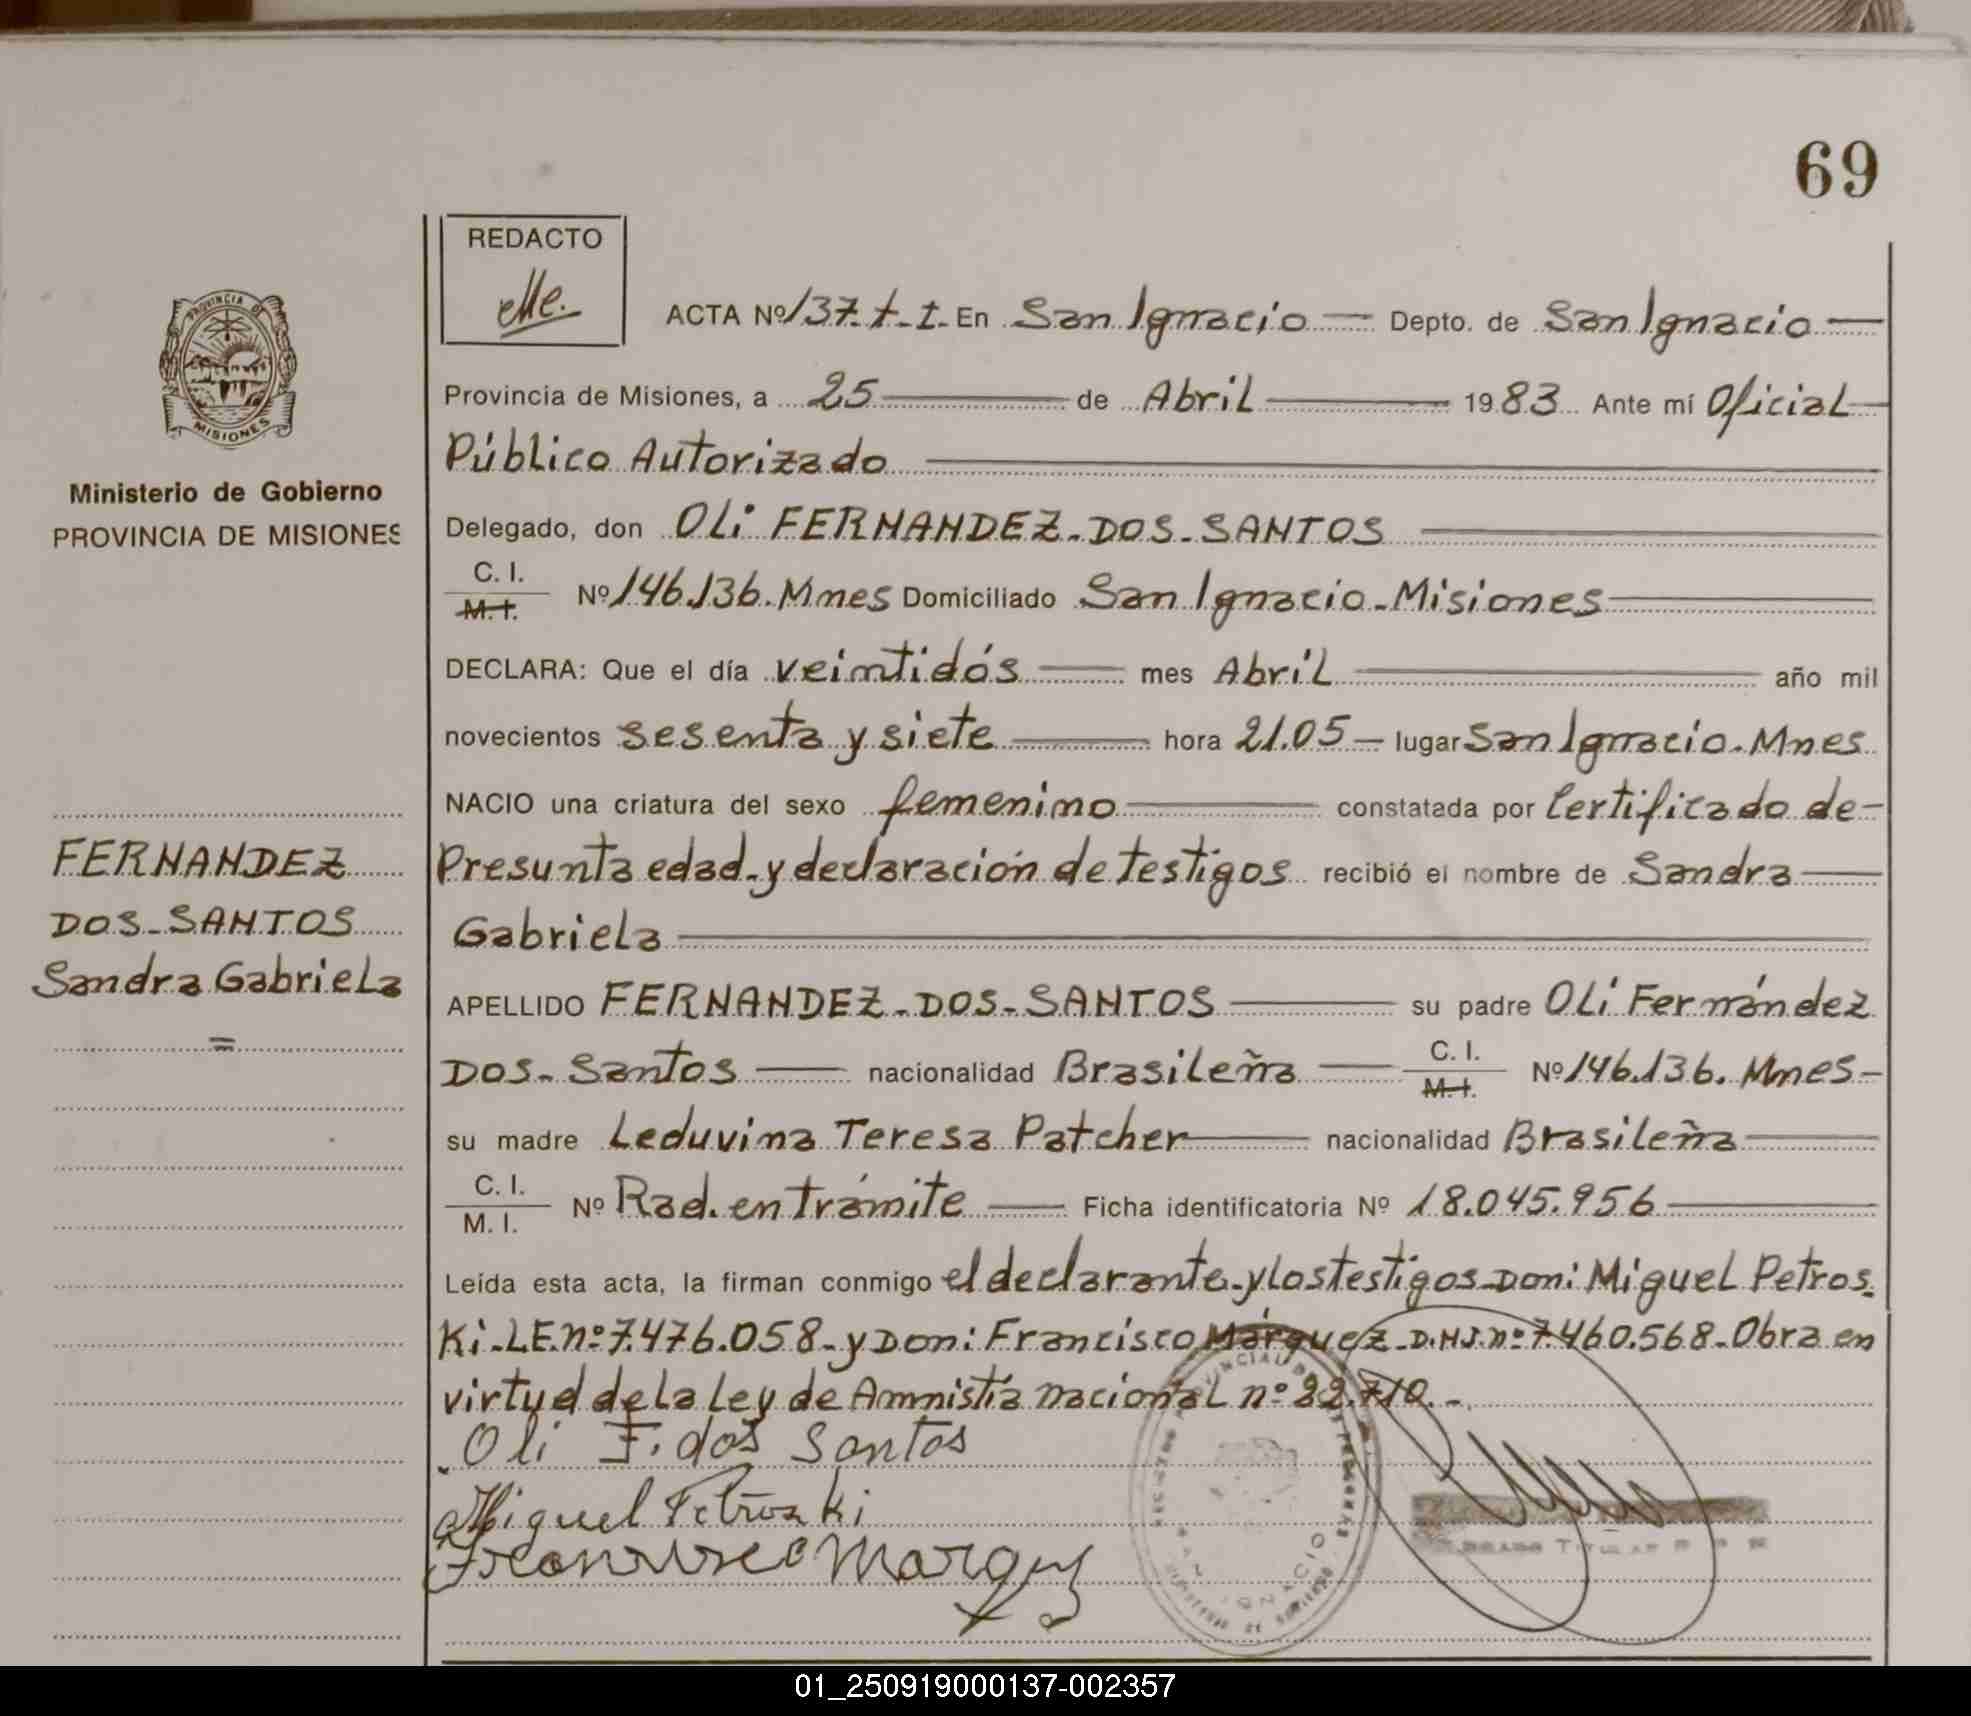 69
REDACTO
PROVINCIA DE
MISIONES
Ministerio de Gobierno
PROVINCIA DE MISIONES
FERNANDEZ
DOS-SANTOS
Sandra Gabriela
=
ACTA Nº 137.t-I- En San Ignacio — Depto. de San Ignacio —
Provincia de Misiones, a 25 — de Abril — 1983 Ante mí Oficial —
Público Autorizado —
Delegado, don OLi FERNANDEZ-DOS-SANTOS —
C. I.
M. I. Nº 146.136.Mnes Domiciliado San Ignacio-Misiones —
DECLARA: Que el día veintidós — mes Abril — año mil
novecientos sesenta y siete — hora 21.05 — lugar San Ignacio. Mnes
NACIO una criatura del sexo femenino — constatada por Certificado de-
Presunta edad-y declaración de testigos recibió el nombre de Sandra —
Gabriela —
APELLIDO FERNANDEZ-DOS-SANTOS — su padre OLi Fernández
DOS-Santos — nacionalidad Brasileña — C. I.
M. I. Nº 146.136. Mnes-
su madre Leduvina Teresa Patcher — nacionalidad Brasileña —
C. I.
M. I. Nº Rad. en Trámite — Ficha identificatoria Nº 18.045.956 —
Leída esta acta, la firman conmigo el declarante-y los testigos-Don: Miguel Petros-
Ki-L.E.nº:7.476.058-y Don: Francisco Márquez-D.N.I.nº 7.460.568-Obra en
virtud de la Ley de Amnistía nacional nº 22.710.-
Oli F. dos Santos
Miguel Petroski
Francisco Marquez
SAN IGNACIO
TITULAR
01_250919000137-002357